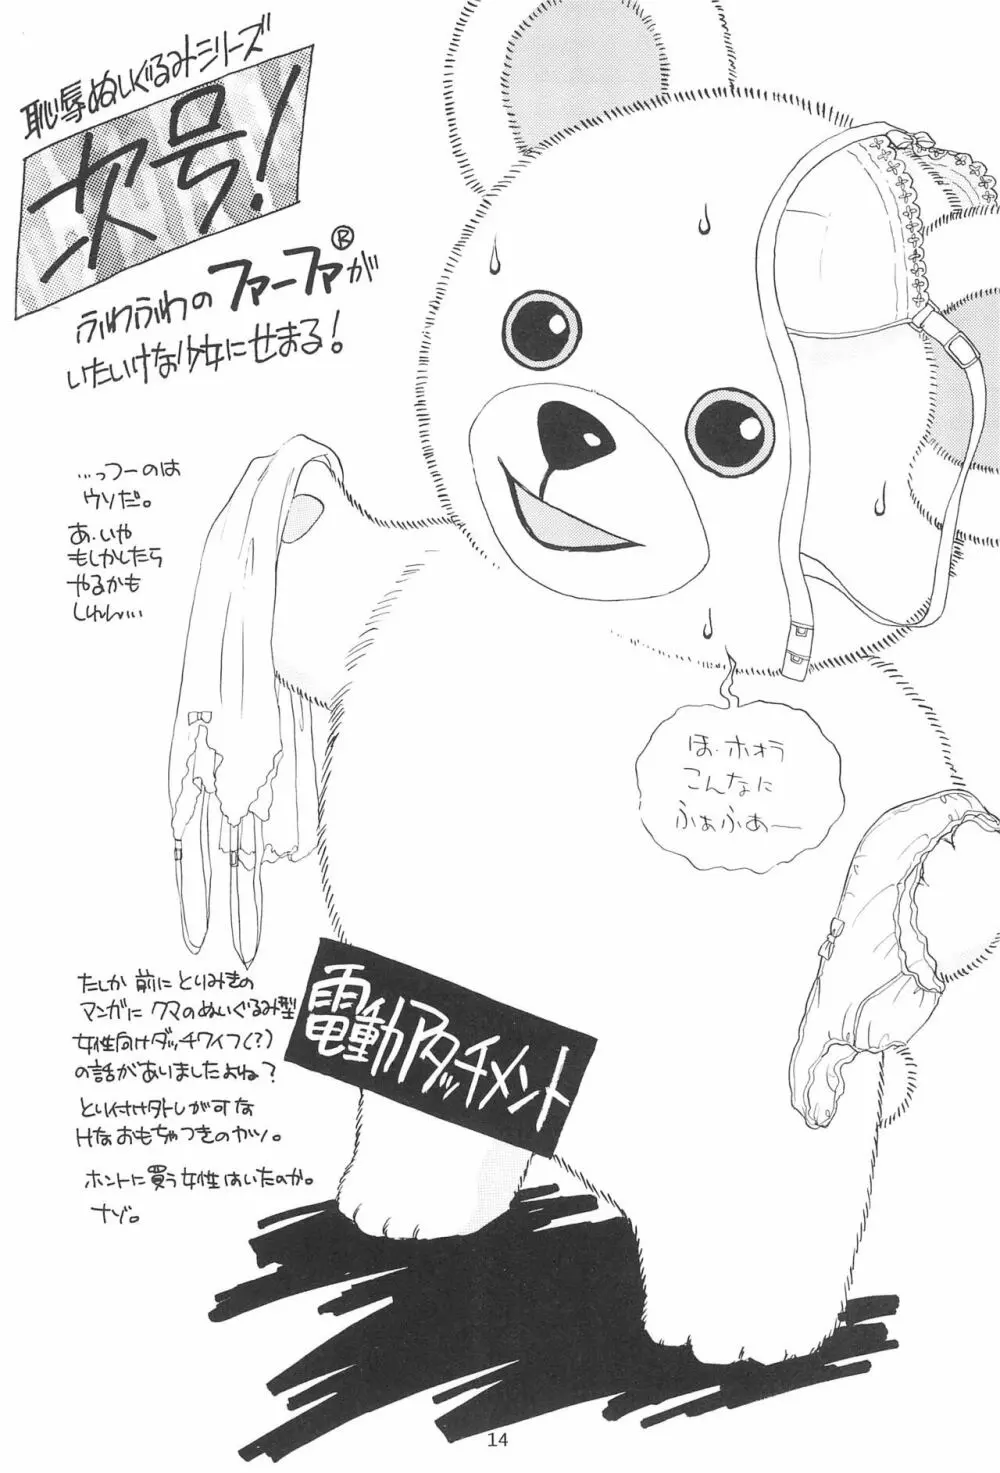 恥辱ぬいぐるみシリーズ
次号!
ふわふわのファーファ®が
いたいけな少女にせまる!
…っつーのは
ウソだ。
あ、いや
もしかしたら
やるかも
しれん…
ほ、ホォラ
こんなに
ふぁふあー
たしか前にとりみきの
マンガにクマのぬいぐるみ型
女性向けダッチワイフ(?)
の話がありましたよね?
とり付けけ外しが可な
Hなおもちゃつきのガソ。
ホントに買う女性はいたのか。
ナゾ。
電動アタッチメント
14